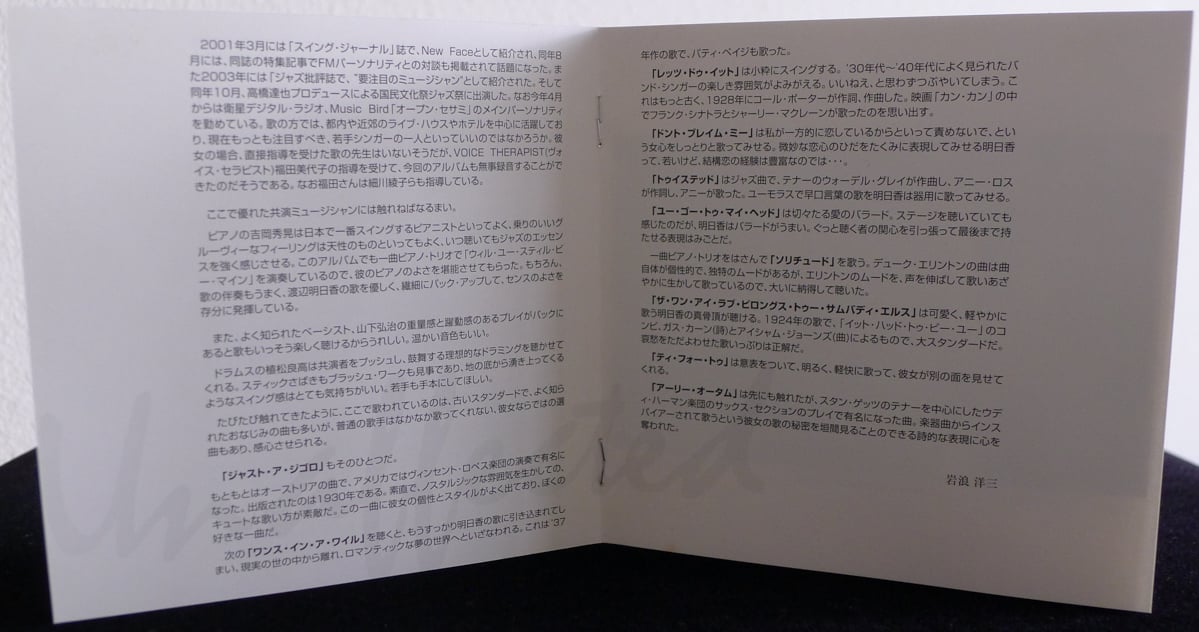 2001年3月には「スイング・ジャーナル」誌で、New Faceとして紹介され、同年8
月には、同誌の特集記事でFMパーソナリティとの対談も掲載されて話題になった。ま
た2003年には「ジャズ批評誌で、“要注目のミュージシャン”として紹介された。そして
同年10月、高橋達也プロデュースによる国民文化祭ジャズ祭に出演した。なお今年4月
からは衛星デジタル・ラジオ、Music Bird「オープン・セサミ」のメインパーソナリティ
を勤めている。歌の方では、都内や近郊のライブ・ハウスやホテルを中心に活躍してお
り、現在もっとも注目すべき、若手シンガーの一人といっていいのではなかろうか。彼
女の場合、直接指導を受けた歌の先生はいないそうだが、VOICE THERAPIST(ヴォ
イス・セラピスト)福田美代子の指導を受けて、今回のアルバムも無事録音することがで
きたのだそうである。なお福田さんは細川綾子らも指導している。
ここで優れた共演ミュージシャンには触れねばなるまい。
ピアノの吉岡秀晃は日本で一番スイングするピアニストといってよく、乗りのいいグ
ルーヴィーなフィーリングは天性のものといってもよく、いつ聴いてもジャズのエッセン
スを強く感じさせる。このアルバムでも一曲ピアノ・トリオで「ウィル・ユー・スティル・ビ
ー・マイン」を演奏しているので、彼のピアノのよさを堪能させてもらった。もちろん、
歌の伴奏もうまく、渡辺明日香の歌を優しく、繊細にバック・アップして、センスのよさを
存分に発揮している。
また、よく知られたベーシスト、山下弘治の重量感と躍動感のあるプレイがバックに
あると歌もいっそう楽しく聴けるからうれしい。温かい音色もいい。
ドラムスの植松良高は共演者をプッシュし、鼓舞する理想的なドラミングを聴かせて
くれる。スティックさばきもブラッシュ・ワークも見事であり、地の底から湧き上ってくる
ようなスイング感はとても気持ちがいい。若手も手本にしてほしい。
たびたび触れてきたように、ここで歌われているのは、古いスタンダードで、よく知ら
れたおなじみの曲も多いが、普通の歌手はなかなか歌ってくれない、彼女ならではの選
曲もあり、感心させられる。
「ジャスト・ア・ジゴロ」もそのひとつだ。
もともとはオーストリアの曲で、アメリカではヴィンセント・ロペス楽団の演奏で有名に
なった。出版されたのは1930年である。素直で、ノスタルジックな雰囲気を生かしての、
キュートな歌い方が素敵だ。この一曲に彼女の個性とスタイルがよく出ており、ぼくの
好きな一曲だ。
次の「ワンス・イン・ア・ワイル」を聴くと、もうすっかり明日香の歌に引き込まれてし
まい、現実の世の中から離れ、ロマンティックな夢の世界へといざなわれる。これは'37
年作の歌で、パティ・ペイジも歌った。
「レッツ・ドゥ・イット」は小粋にスイングする。'30年代〜'40年代によく見られたバ
ンド・シンガーの楽しき雰囲気がよみがえる。いいねえ、と思わずつぶやいてしまう。こ
れはもっと古く、1928年にコール・ポーターが作詞、作曲した。映画「カン・カン」の中
でフランク・シナトラとシャーリー・マクレーンが歌ったのを思い出す。
「ドント・ブレイム・ミー」は私が一方的に恋しているからといって責めないで、とい
う女心をしっとりと歌ってみせる。微妙な恋心のひだをたくみに表現してみせる明日香
って、若いけど、結構恋の経験は豊富なのでは・・・。
「トゥイステッド」はジャズ曲で、テナーのウォーデル・グレイが作曲し、アニー・ロス
が作詞し、アニーが歌った。ユーモラスで早口言葉の歌を明日香は器用に歌ってみせる。
「ユー・ゴー・トゥ・マイ・ヘッド」は切々たる愛のバラード。ステージを聴いていても
感じたのだが、明日香はバラードがうまい。ぐっと聴く者の関心を引っ張って最後まで持
たせる表現はみごとだ。
一曲ピアノ・トリオをはさんで「ソリチュード」を歌う。デューク・エリントンの曲は曲
自体が個性的で、独特のムードがあるが、エリントンのムードを、声を伸ばして歌いあざ
やかに生かして歌っているので、大いに納得して聴いた。
「ザ・ワン・アイ・ラブ・ビロングス・トゥー・サムバディ・エルス」は可愛く、軽やかに
歌う明日香の真骨頂が聴ける。1924年の歌で、「イット・ハッド・トゥ・ビー・ユー」のコ
ンビ、ガス・カーン(詩)とアイシャム・ジョーンズ(曲)によるもので、大スタンダードだ。
哀愁をただよわせた歌いっぷりは正解だ。
「ティ・フォー・トゥ」は意表をついて、明るく、軽快に歌って、彼女が別の面を見せて
くれる。
「アーリー・オータム」は先にも触れたが、スタン・ゲッツのテナーを中心にしたウデ
ィ・ハーマン楽団のサックス・セクションのプレイで有名になった曲。楽器曲からインス
パイアーされて歌うという彼女の歌の秘密を垣間見ることのできる詩的な表現に心を
奪われた。
岩浪 洋三